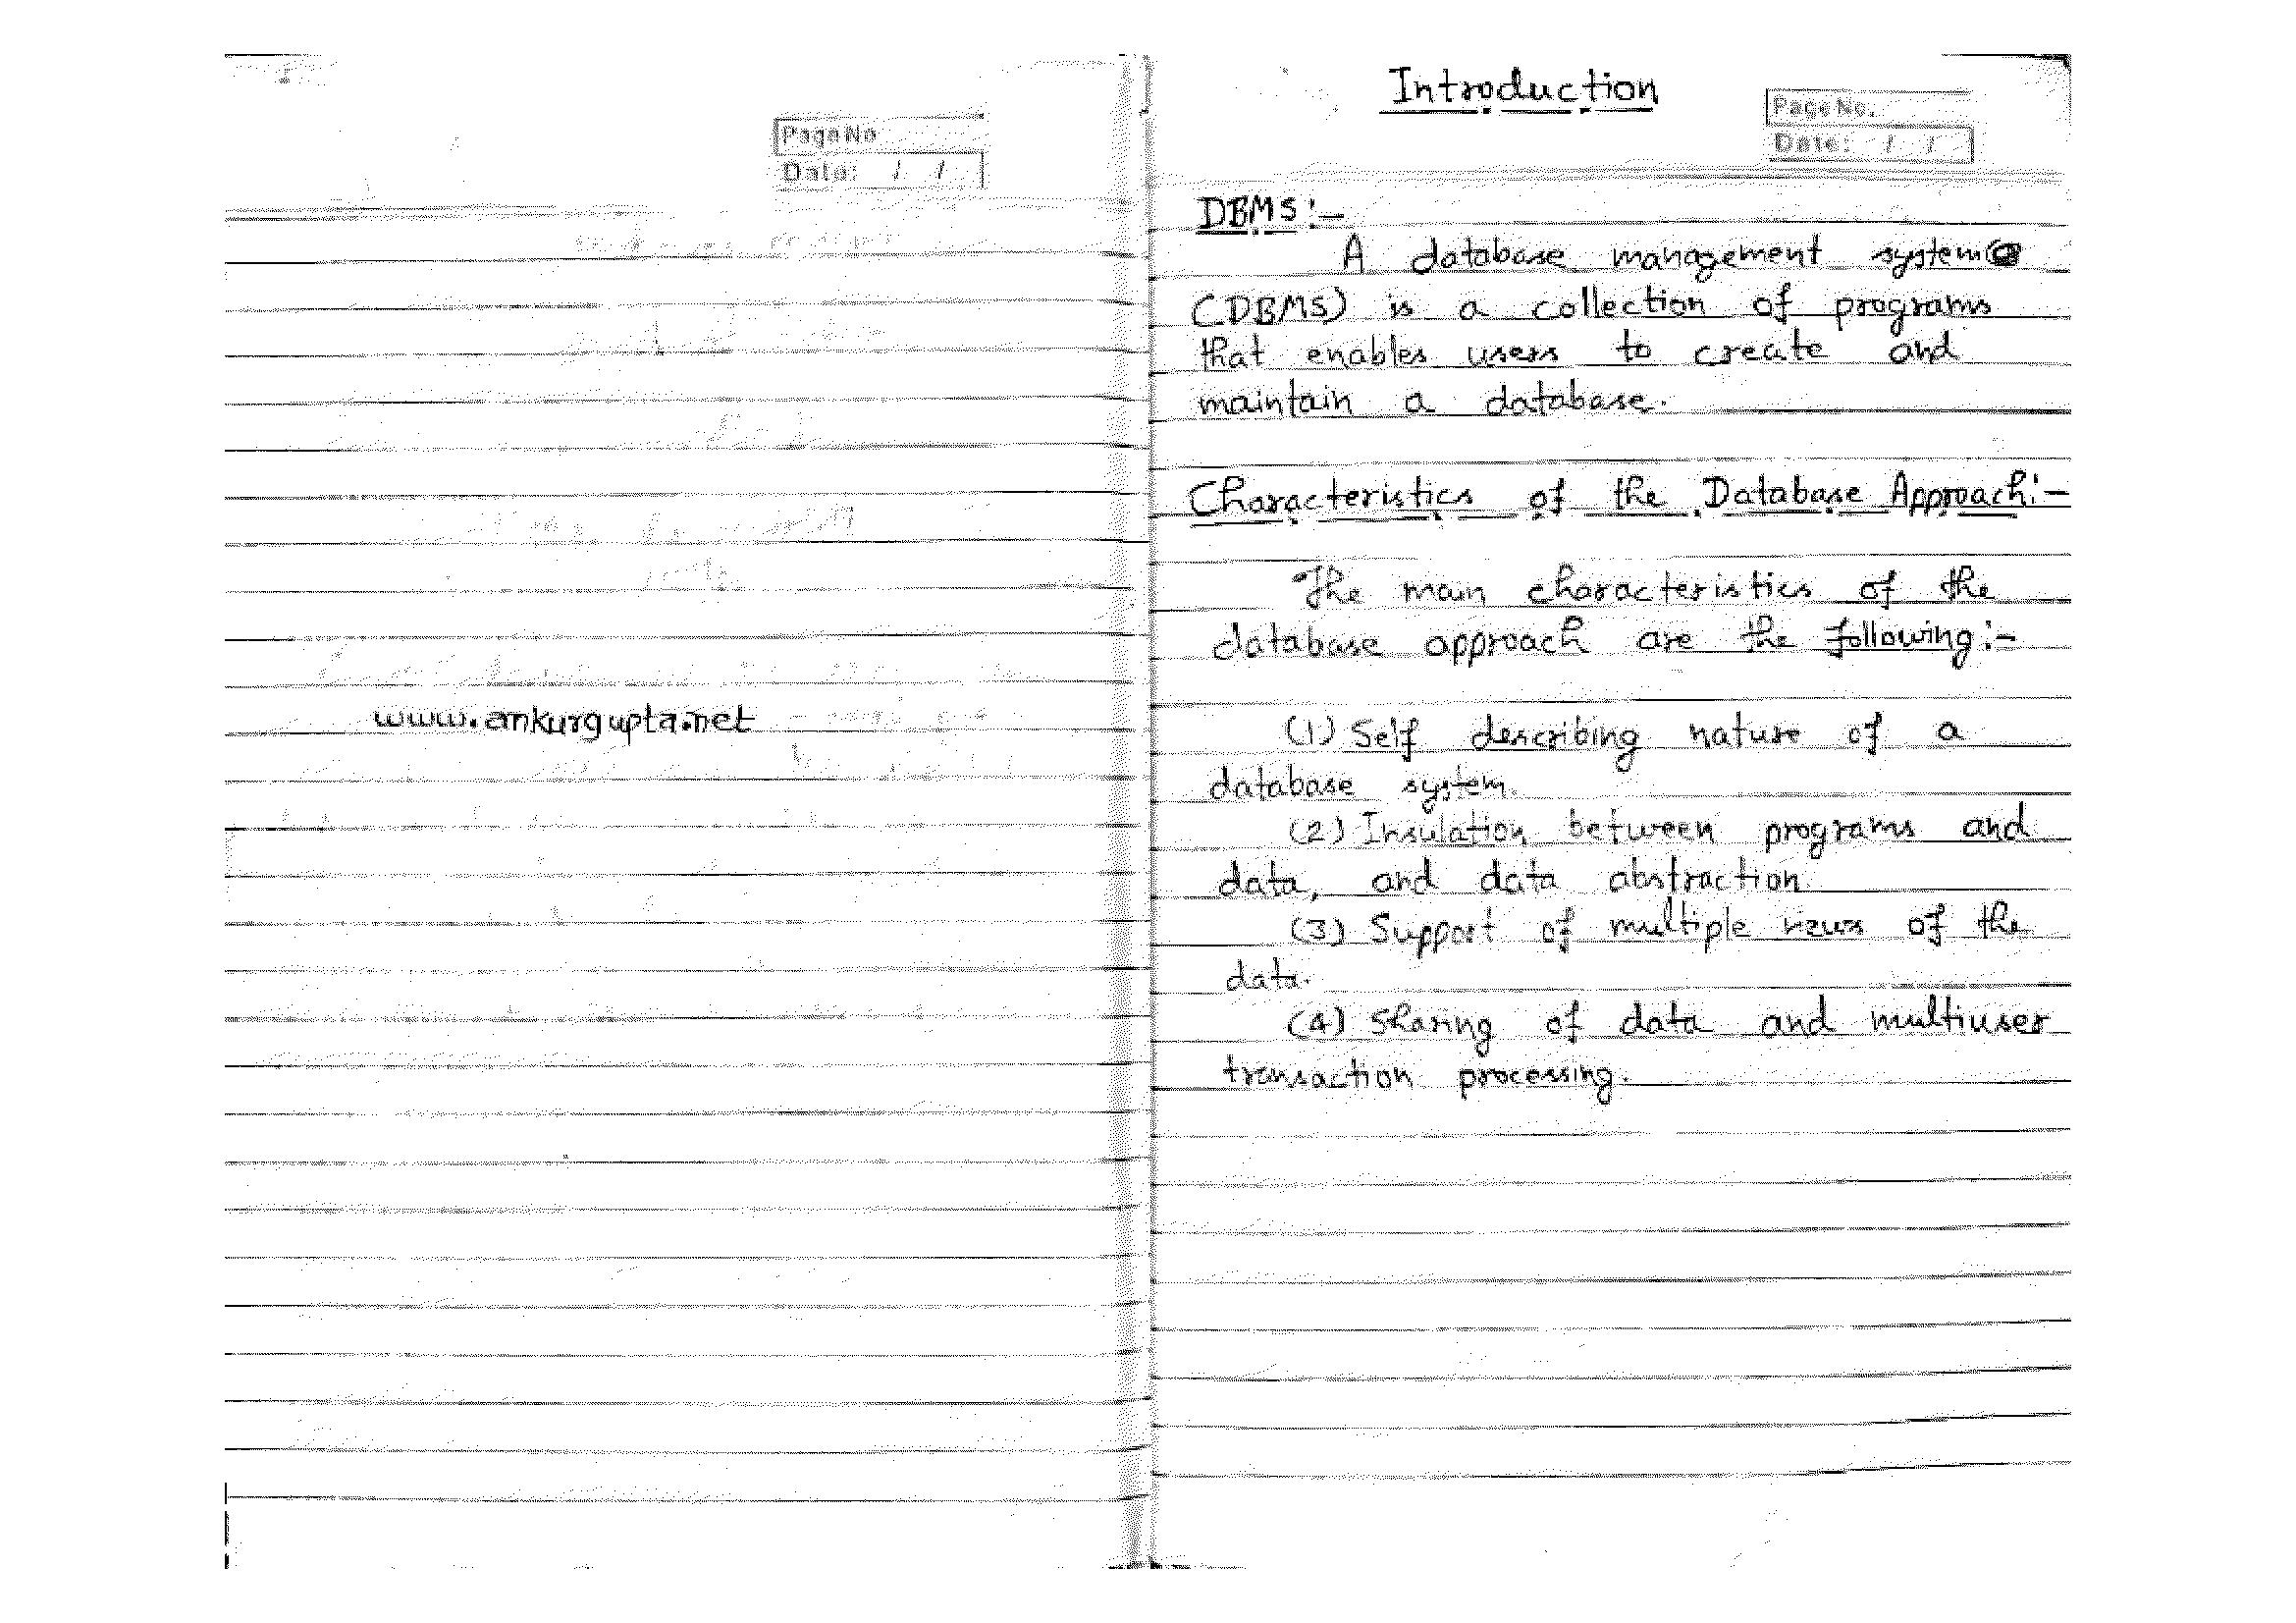 Page No
Date: / /
www.ankurgupta.net
Introduction
Page No.
Date: / /
DBMS:-
A database management system
(DBMS) is a collection of programs
that enables users to create and
maintain a database.
Characteristics of the Database Approach:-
The main characteristics of the
database approach are the following:-
(1) Self describing nature of a
database system.
(2) Insulation between programs and
data, and data abstraction
(3) Support of multiple views of the
data.
(4) Sharing of data and multiuser
transaction processing.